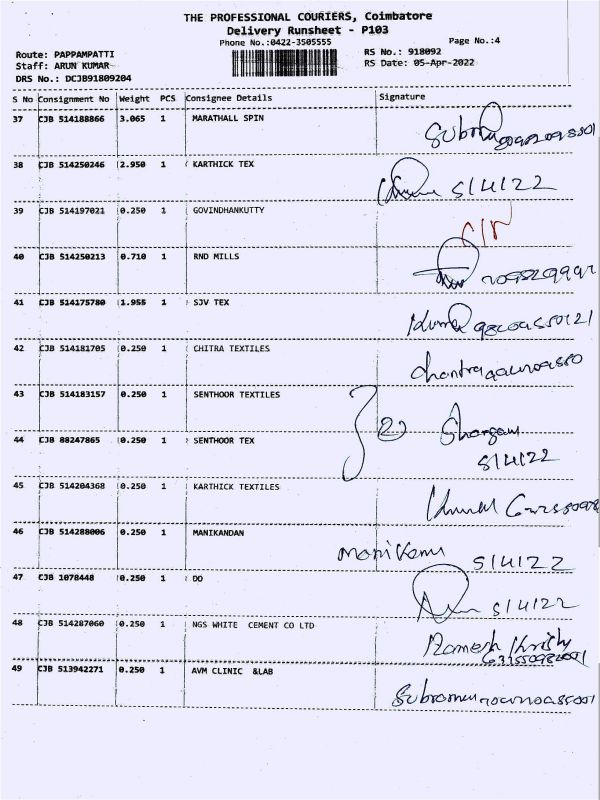 THE PROFESSIONAL COURIERS, Coimbatore
Delivery Runsheet - P103
Phone No.:0422-3505555
Page No.:4
Route: PAPPAMPATTI
RS No.: 918092
Staff: ARUN KUMAR
RS Date: 05-Apr-2022
DRS No.: DCJB91809204
S No Consignment No Weight PCS Consignee Details Signature
37 CJB 514188866 3.065 1 MARATHALL SPIN
38 CJB 514250246 2.950 1 KARTHICK TEX
5/4/22
39 CJB 514197021 0.250 1 GOVINDHANKUTTY
40 CJB 514250213 0.710 1 RND MILLS
41 CJB 514175780 1.955 1 SJV TEX
42 CJB 514181705 0.250 1 CHITRA TEXTILES
43 CJB 514183157 0.250 1 SENTHOOR TEXTILES
44 CJB 88247865 0.250 1 SENTHOOR TEX
5/4/22
45 CJB 514204368 0.250 1 KARTHICK TEXTILES
46 CJB 514288006 0.250 1 MANIKANDAN
5/4/22
47 CJB 1078448 0.250 1 DO
5/4/22
48 CJB 514287060 0.250 1 NGS WHITE CEMENT CO LTD
Ramesh
49 CJB 513942271 0.250 1 AVM CLINIC &LAB